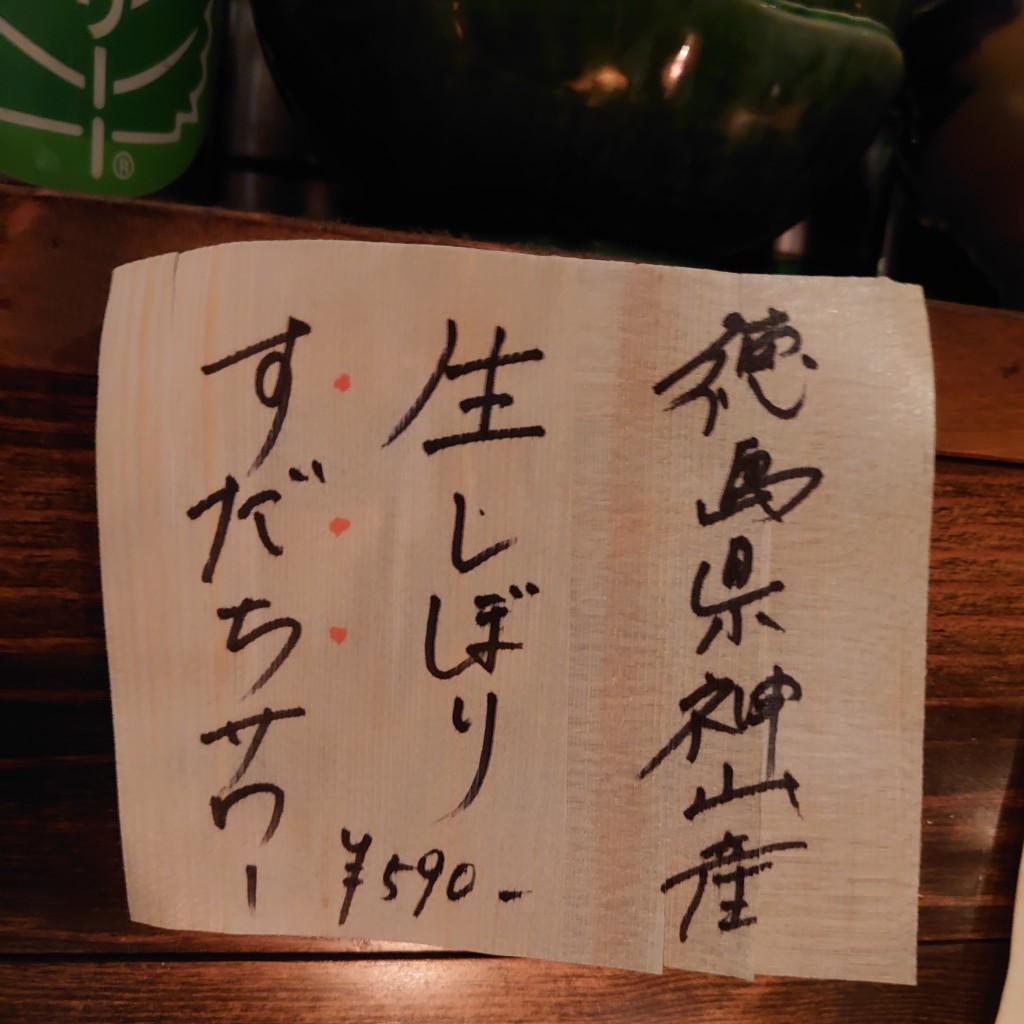 徳島県神山産
生しぼり
すだちサワー
¥590-
®